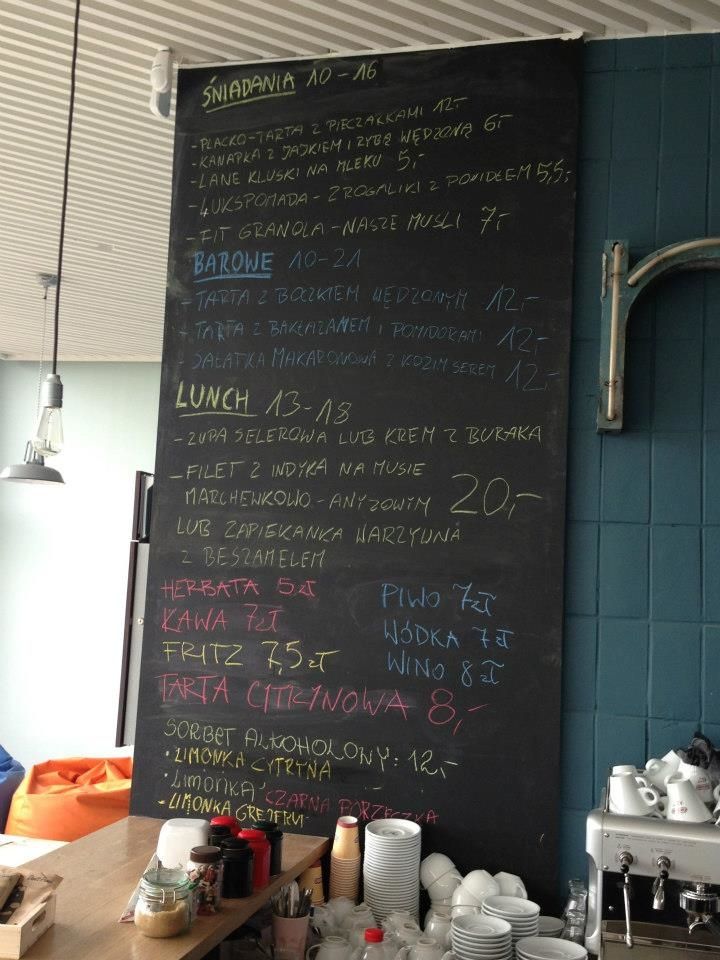 ŚNIADANIA 10-16
- PLACKO-TARTA Z PIECZARKAMI 12,-
- KANAPKA Z JAJKIEM I RYBĄ WĘDZONĄ 6,-
- LANE KLUSKI NA MLEKU 5,-
- ŁUKSPOMADA - 2 ROGALIKI Z POWIDŁEM 5,5,-
- FIT GRANOLA - NASZE MUSLI 7,-
BAROWE 10-21
- TARTA Z BOCZKIEM WĘDZONYM 12,-
- TARTA Z BAKŁAŻANEM I POMIDORAMI 12,-
- SAŁATKA MAKARONOWA Z KOZIM SEREM 12,-
LUNCH 13-18
- ZUPA SELEROWA LUB KREM Z BURAKA
- FILET Z INDYKA NA MUSIE
MARCHEWKOWO-ANYŻOWYM 20,-
LUB ZAPIEKANKA WARZYWNA
Z BESZAMELEM
HERBATA 5 zł
KAWA 7 zł
FRITZ 7,5 zł
PIWO 7 zł
WÓDKA 7 zł
WINO 8 zł
TARTA CYTRYNOWA 8,-
SORBET ALKOHOLOWY: 12,-
• LIMONKA CYTRYNA
• LIMONKA CZARNA PORZECZKA
- LIMONKA GREJPFRUT